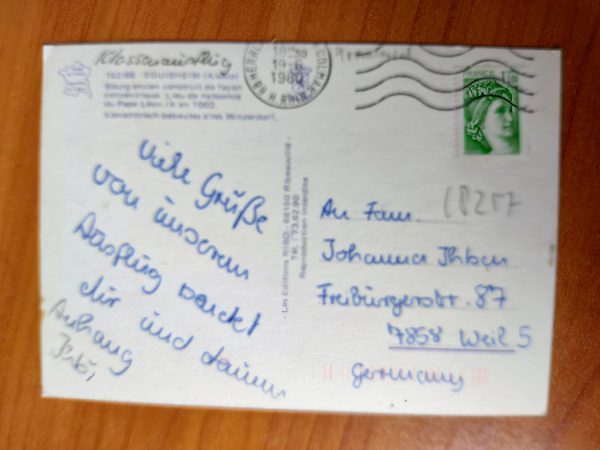 Klassenausflug
162/86 - EGUISHEIM (Alsace)
Bourg ancien construit de façon
concentrique. Lieu de naissance
du Pape Léon IX en 1002.
Konzentrisch bebautes altes Winzerdorf.
18 H 30
19-6
1980
COLMAR
H. RHIN
FRANCE
1,10
Viele Grüße
von unserem
Ausflug sendet
dir und deinem
Anhang
- Les Editions RIBO - 68150 Ribeauvillé -
Tél. : 73.62.90
Reproduction interdite
18217
An Fam.
Johanna
Freiburgerstr. 87
7858 Weil 5
Germany